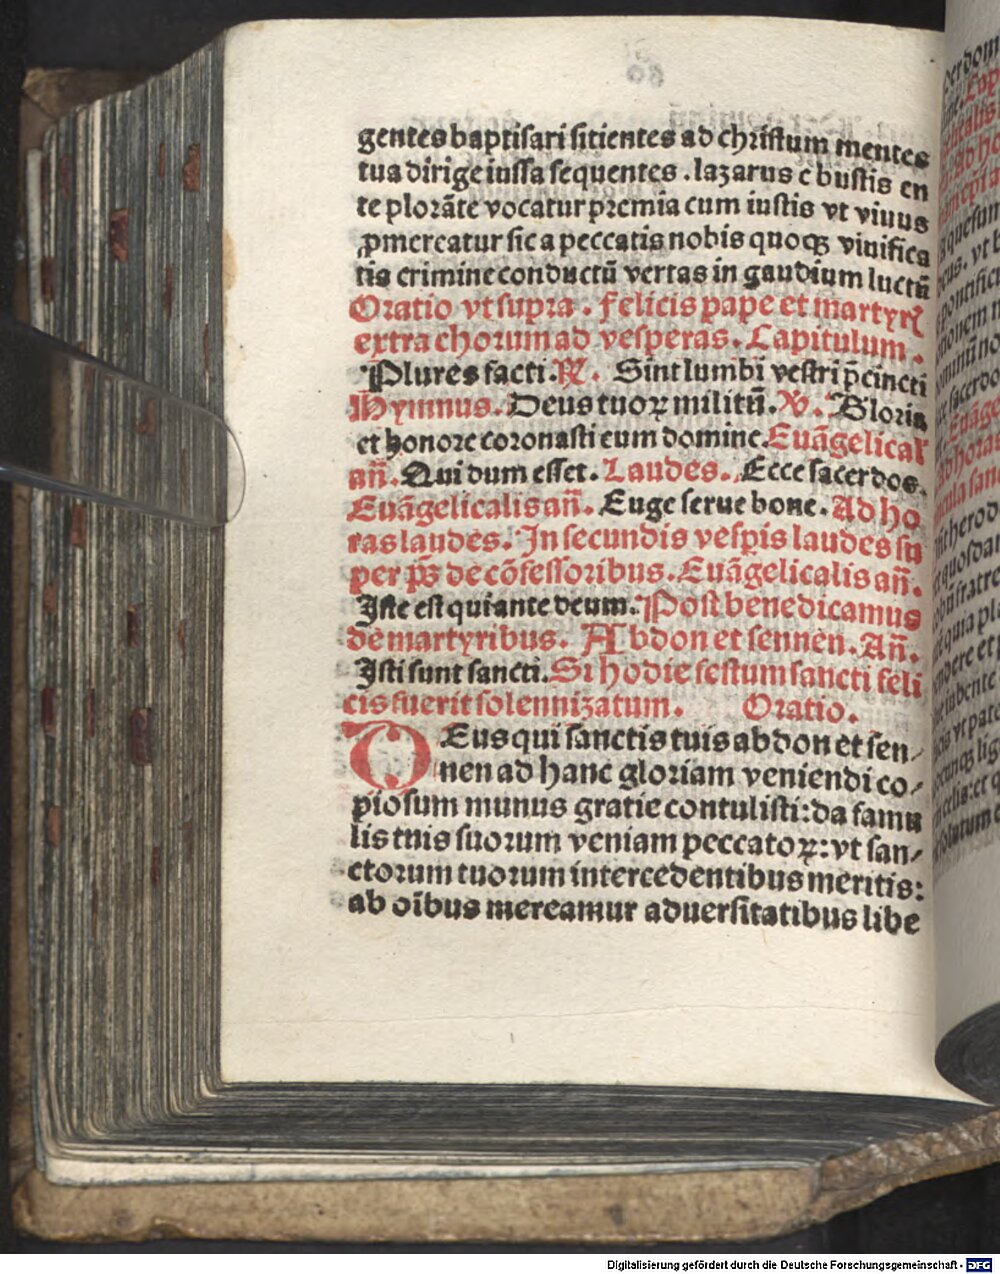 gentes baptisari sitientes ad christum mentes
tua dirige iussa sequentes . lazarus e bustis en
te plorāte vocatur premia cum iustis vt viuus
ꝓmereatur sic a peccatis nobis quoqꝫ viuifica
tis crimine conductū vertas in gaudium luctū
Oratio vt supra . Felicis pape et martyrꝭ
extra chorum ad vesperas . Capitulum .
Plures facti . ℟ . Sint lumbi vestri p̄cincti
Hymnus . Deus tuoꝝ militū . ℣ . Gloria
et honore coronasti eum domine . Euāgelicał
añ . Qui dum esset . Laudes . Ecce sacerdos .
Euāgelicalis añ . Euge serue bone . Ad ho
ras laudes . In secundis vesp̄is laudes su
per p̄s de cōfessoribus . Euāgelicalis añ .
Iste est qui ante deum . Post benedicamus
de martyribus . Abdon et sennen . Añ .
Isti sunt sancti . Si hodie festum sancti feli
cis fuerit solennizatum . Oratio .
DEus qui sanctis tuis abdon et sen⸗
nen ad hanc gloriam veniendi co⸗
piosum munus gratie contulisti : da famu
lis tuis suorum veniam peccatoꝝ : vt san⸗
ctorum tuorum intercedentibus meritis :
ab oībus mereamur aduersitatibus libe
Digitalisierung gefördert durch die Deutsche Forschungsgemeinschaft - DFG